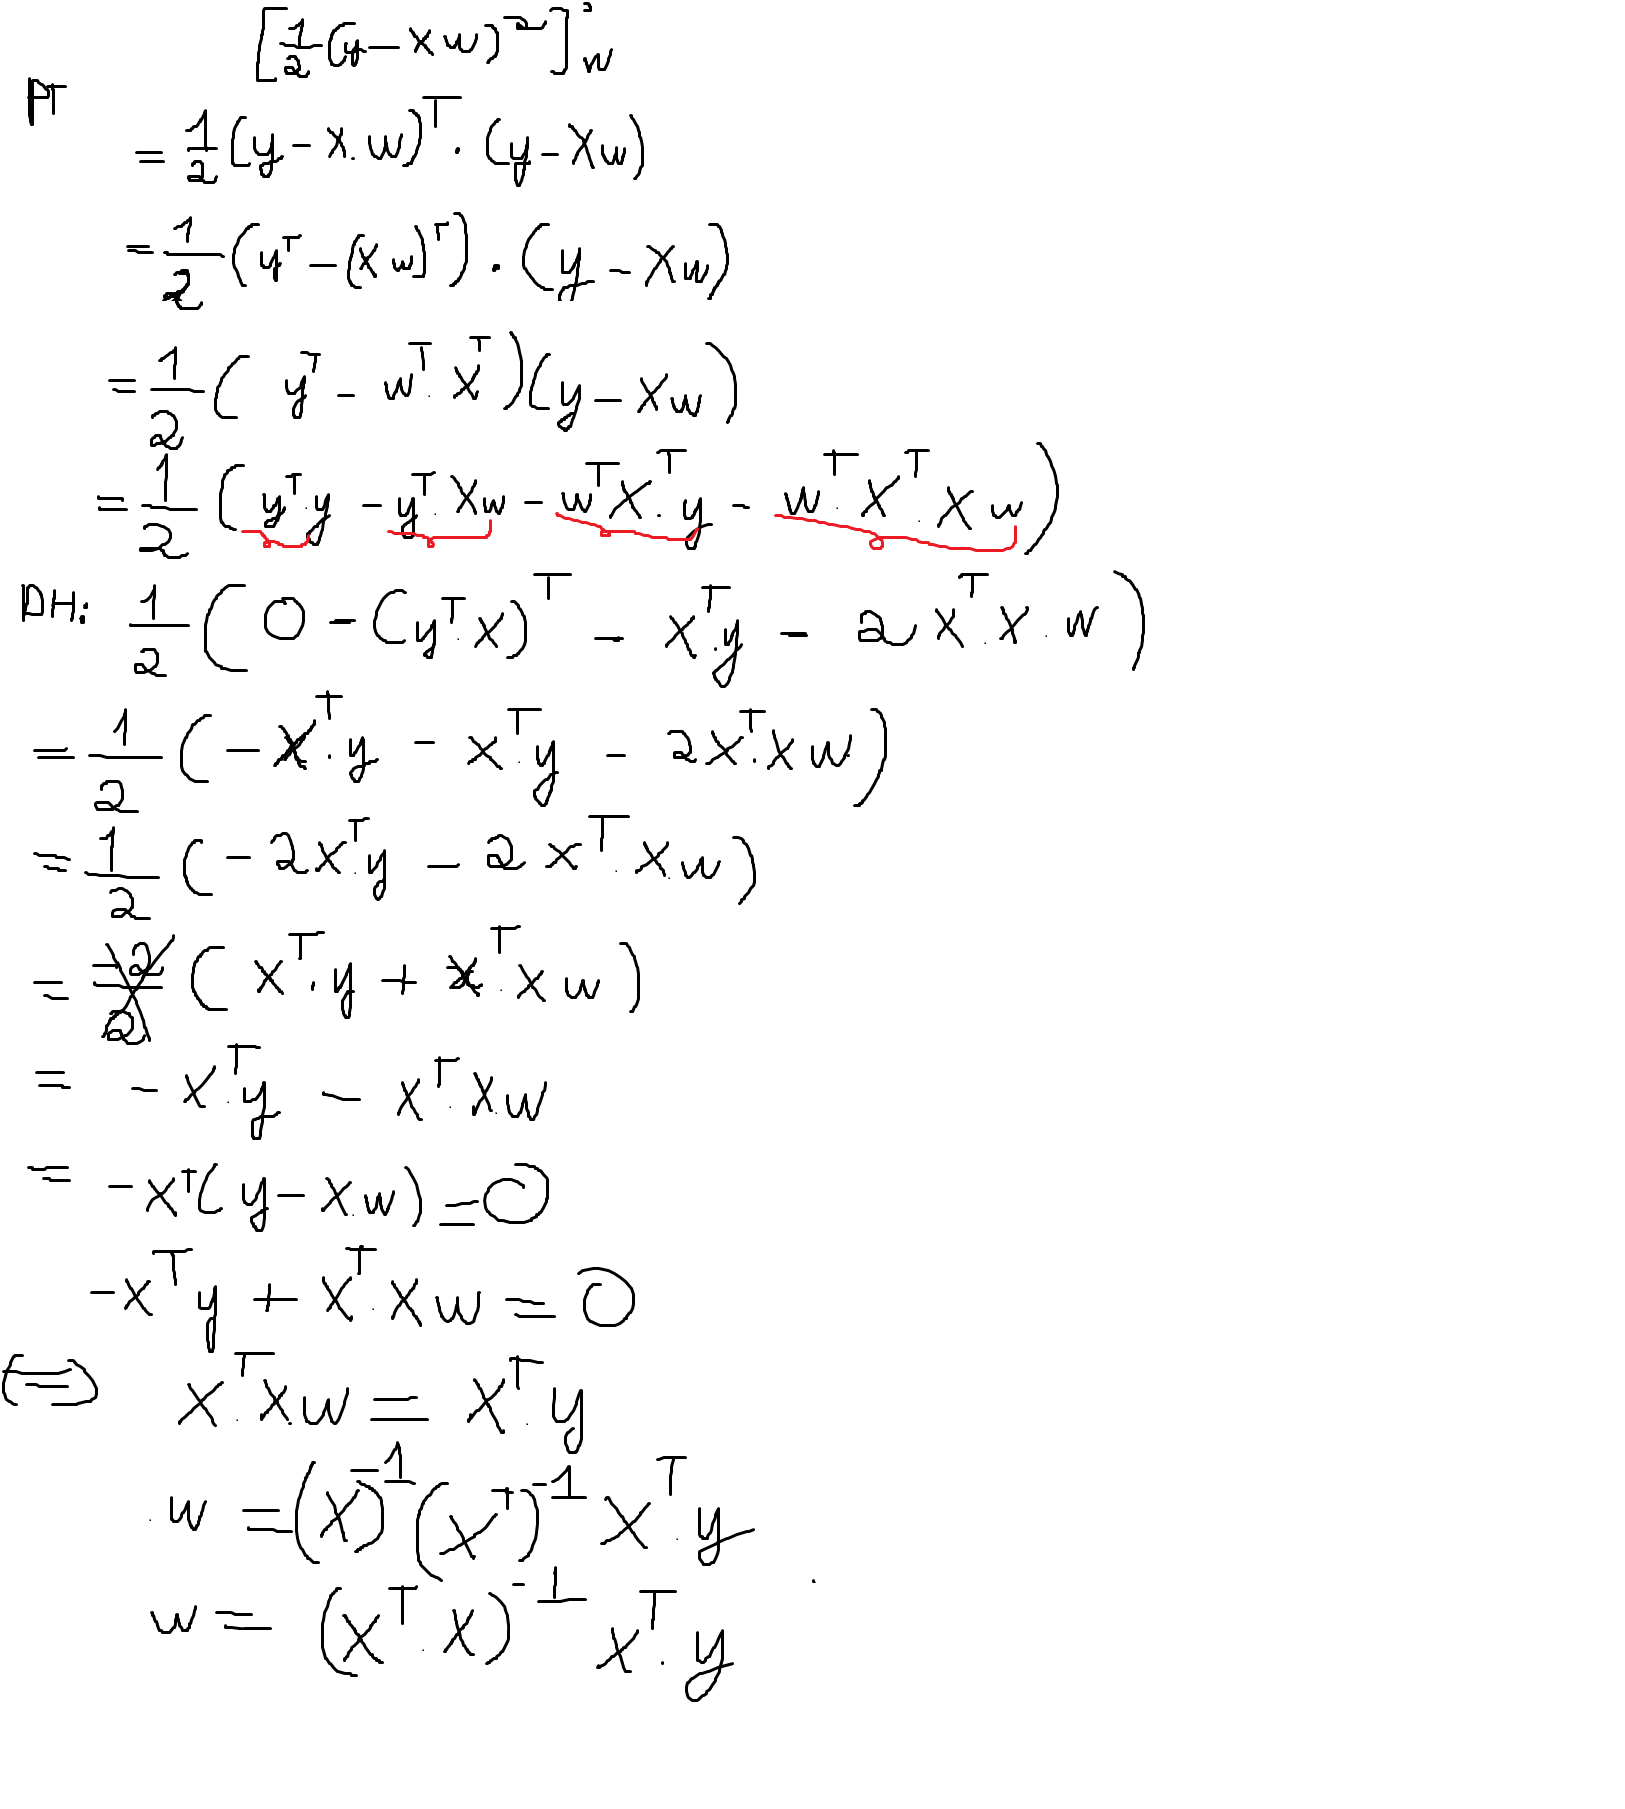 [½(y - Xw)²]'w
PT
= ½(y - X.w)ᵀ . (y - Xw)
= ½(yᵀ - (Xw)ᵀ) . (y - Xw)
= ½(yᵀ - wᵀ.Xᵀ)(y - Xw)
= ½(yᵀ.y - yᵀ.Xw - wᵀXᵀ.y - wᵀ.Xᵀ.Xw)
DH: ½(0 - (yᵀ.X)ᵀ - Xᵀ.y - 2Xᵀ.X.w)
= ½(-Xᵀ.y - Xᵀ.y - 2Xᵀ.Xw)
= ½(-2Xᵀ.y - 2Xᵀ.X.w)
= -2/2 (Xᵀ.y + Xᵀ.Xw)
= -Xᵀ.y - Xᵀ.X.w
= -Xᵀ(y - X.w) = 0
-Xᵀy + Xᵀ.Xw = 0
(=) Xᵀ.X.w = Xᵀ.y
w = (X)⁻¹(Xᵀ)⁻¹Xᵀ.y
w = (Xᵀ.X)⁻¹Xᵀ.y